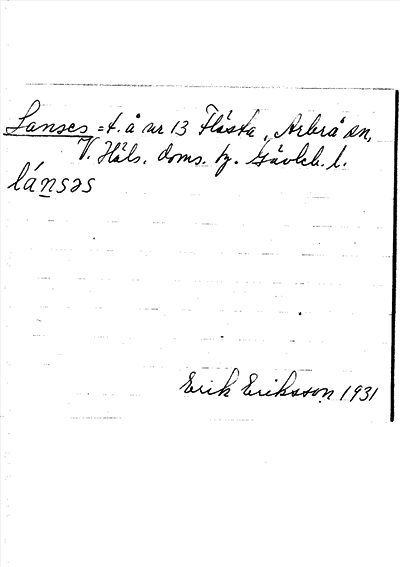 Lanses = t. å nr 13 Flästa, Arbrå sn,
V. Häls. doms. hg. Gävleb. l.
lánsəs
Erik Eriksson 1931